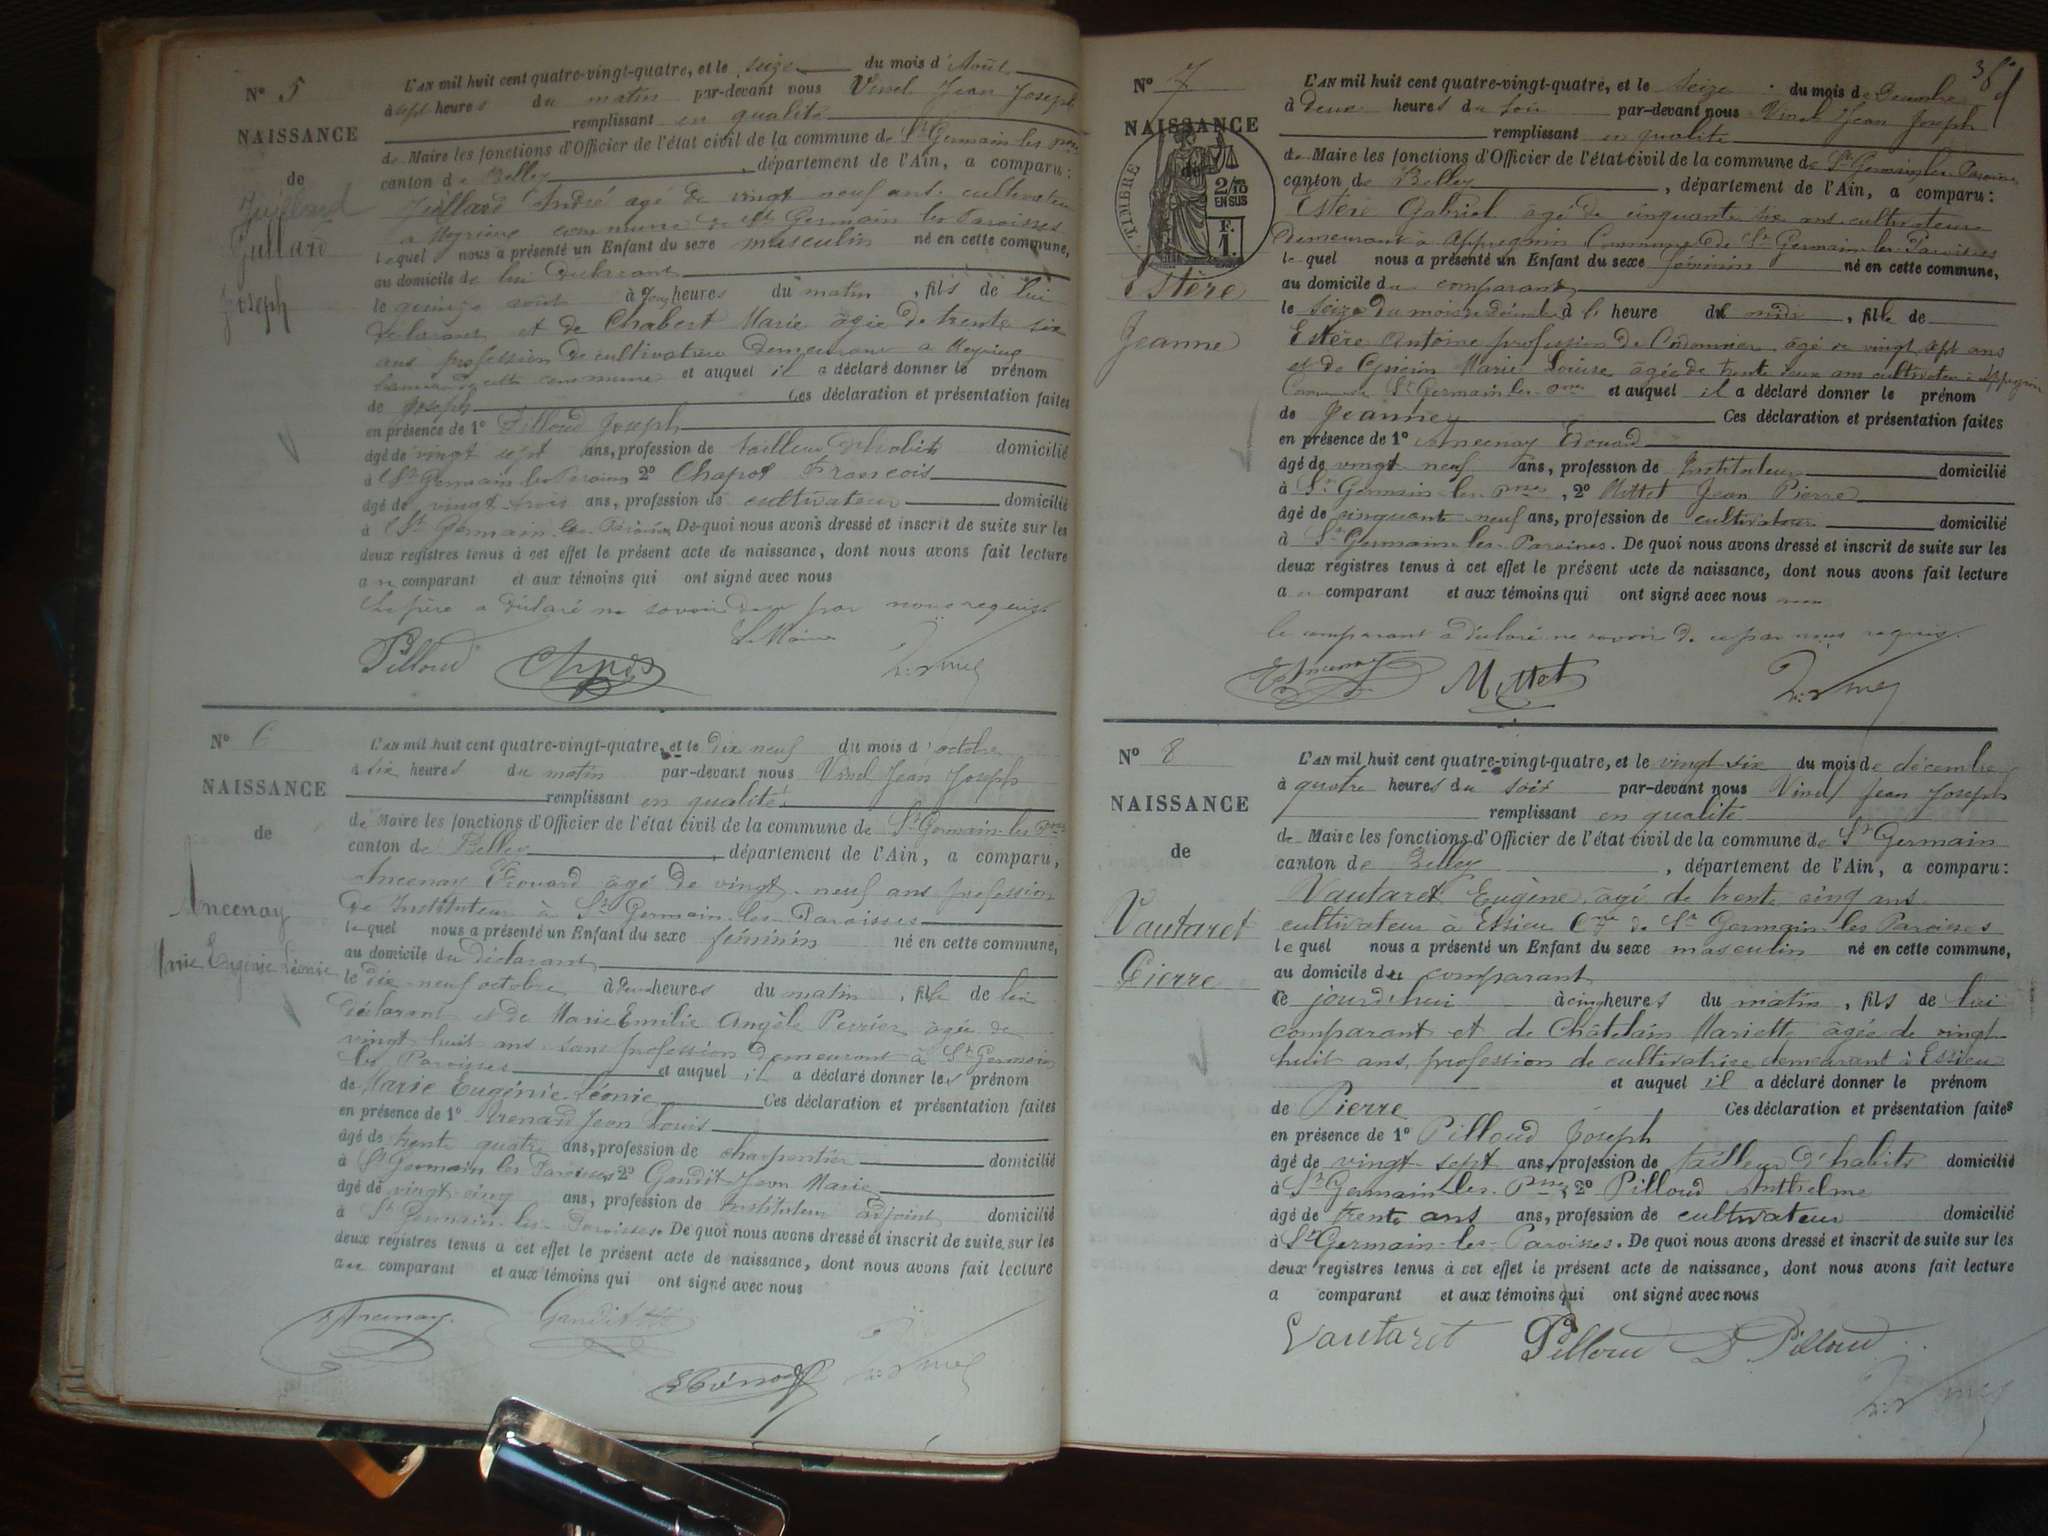 N° 5
NAISSANCE
de
Juillard
Juillard
Joseph
L'AN mil huit cent quatre-vingt-quatre, et le seize du mois d'Août
à sept heures du matin par-devant nous Vinel Jean Joseph
remplissant en qualité
de Maire les fonctions d'Officier de l'état civil de la commune de St Germain les Pses
canton de Belley, département de l'Ain, a comparu:
Juillard André agé de vingt neuf ans cultivateur
a Meyrieu commune de St Germain les Paroisses
lequel nous a présenté un Enfant du sexe masculin né en cette commune,
au domicile de lui déclarant
le quinze août à heures du matin, fils de lui
déclarant et de Chabert Marie âgée de trente six
ans profession de cultivatrice demeurant a Meyrieu
et auquel il a déclaré donner le prénom
de Joseph Ces déclaration et présentation faites
en présence de 1° Pilloud Joseph
âgé de vingt sept ans, profession de tailleur d'habits domicilié
à St Germain les Paroisses 2° Chapot François
âgé de vingt trois ans, profession de cultivateur domicilié
à St Germain les Paroisses De quoi nous avons dressé et inscrit de suite sur les
deux registres tenus à cet effet le présent acte de naissance, dont nous avons fait lecture
au comparant et aux témoins qui ont signé avec nous
Le père a déclaré ne savoir de ce par nous requis.
Le Maire
Pilloud
N° 6
NAISSANCE
de
Ancenay
Marie Eugénie Léonie
L'AN mil huit cent quatre-vingt-quatre, et le dix neuf du mois d'octobre
à six heures du matin par-devant nous Vinel Jean Joseph
remplissant en qualité
de Maire les fonctions d'Officier de l'état civil de la commune de St Germain les Pses
canton de Belley, département de l'Ain, a comparu,
Ancenay Edouard âgé de vingt-neuf ans profession
de Instituteur à St Germain-les-Paroisses
lequel nous a présenté un Enfant du sexe féminin né en cette commune,
au domicile du déclarant
le dix neuf octobre à deux heures du matin, fille de lui
déclarant et de Marie Emilie Angèle Perrier âgée de
vingt huit ans sans profession demeurant à St Germain
les Paroisses et auquel il a déclaré donner les prénom
de Marie Eugénie Léonie Ces déclaration et présentation faites
en présence de 1° Jean Louis
âgé de trente quatre ans, profession de charpentier domicilié
à St Germain les Paroisses 2° Gandit Jean Marie
âgé de vingt cinq ans, profession de Instituteur adjoint domicilié
à St Germain-les-Paroisses. De quoi nous avons dressé et inscrit de suite sur les
deux registres tenus à cet effet le présent acte de naissance, dont nous avons fait lecture
au comparant et aux témoins qui ont signé avec nous
Ancenay
N° 7
NAISSANCE
de
TIMBRE
2/10
EN SUS
F.
1.
Estère
Jeanne
L'AN mil huit cent quatre-vingt-quatre, et le seize du mois de Décembre
à deux heures du soir par-devant nous Vinel Jean Joseph
remplissant en qualité
de Maire les fonctions d'Officier de l'état civil de la commune de St Germain les Paroisses
canton de Belley, département de l'Ain, a comparu:
Estère Gabriel âgé de cinquante six ans cultivateur
demeurant à Appregnin Commune de St Germain les Paroisses
lequel nous a présenté un Enfant du sexe féminin né en cette commune,
au domicile du comparant
le seize du mois de décembre à heure de midi, fille de
Estère Antoine profession de Cordonnier âgé de vingt sept ans
et de Marie Louise âgée de trente deux ans à Appregnin
Commune St Germain-les-Pses et auquel il a déclaré donner le prénom
de Jeanne Ces déclaration et présentation faites
en présence de 1° Ancenay Edouard
âgé de vingt neuf ans, profession de Instituteur domicilié
à St Germain-les-Pses, 2° Mittet Jean Pierre
âgé de cinquante neuf ans, profession de cultivateur domicilié
à St Germain-les-Paroisses. De quoi nous avons dressé et inscrit de suite sur les
deux registres tenus à cet effet le présent acte de naissance, dont nous avons fait lecture
au comparant et aux témoins qui ont signé avec nous
le comparant a déclaré ne savoir de ce par nous requis.
Ancenay Mittet
N° 8
NAISSANCE
de
Vautaret
Pierre
L'AN mil huit cent quatre-vingt-quatre, et le vingt six du mois de décembre
à quatre heures du soir par-devant nous Vinel Jean Joseph
remplissant en qualité
de Maire les fonctions d'Officier de l'état civil de la commune de St Germain
canton de Belley, département de l'Ain, a comparu:
Vautaret Eugène, âgé de trente cinq ans
cultivateur à Essieu Cne de St Germain-les Paroisses
lequel nous a présenté un Enfant du sexe masculin né en cette commune,
au domicile du comparant
Ce jourd'hui à cinq heures du matin, fils de lui
comparant et de Châtelain Mariette âgée de vingt
huit ans, profession de cultivatrice demeurant à Essieu
et auquel il a déclaré donner le prénom
de Pierre Ces déclaration et présentation faites
en présence de 1° Pilloud Joseph
âgé de vingt-sept ans, profession de tailleur d'habits domicilié
à St Germain-les-Pses, 2° Pilloud Anthelme
âgé de trente ans ans, profession de cultivateur domicilié
à St Germain-les-Paroisses. De quoi nous avons dressé et inscrit de suite sur les
deux registres tenus à cet effet le présent acte de naissance, dont nous avons fait lecture
a comparant et aux témoins qui ont signé avec nous
Vautaret Pilloud Pilloud